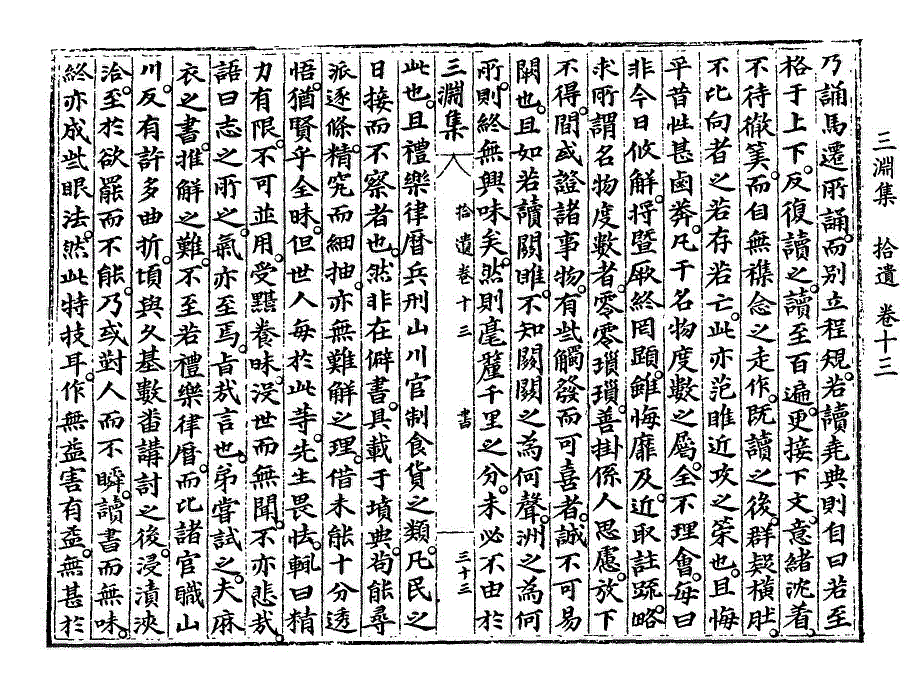 三淵集 拾遺 卷十三
乃誦馬遷所誦。而別立程規。若讀堯典則自曰若至
格于上下。反復讀之。讀至百遍。更接下文。意緖沈着。
不待徹箕。而自無襍念之走作。旣讀之後。群疑橫肚。
不比向者之若存若亡。此亦范睢近攻之策也。且悔
平昔性甚鹵莽。凡干名物度數之屬。全不理會。每曰
非今日攸解。捋曁厥終罔顗。雖悔靡及。近取註疏。略
求所謂名物度數者。零零瑣瑣。善掛係人思慮。放下
不得。間或證諸事物。有些觸發而可喜者。誠不可易
闋也。且如若讀關雎。不知關關之爲何聲。洲之爲何
所。則終無興味矣。然則毫釐千里之分。未必不由於
三淵集 拾遺卷十三 書 三十三
此也。且禮樂律曆兵刑山川官制食貨之類。凡民之
日接而不察者也。然非在僻書。具載于墳典。苟能尋
派逐條。精究而細抽。亦無難解之理。借未能十分透
悟。猶賢乎全昧。但世人每於此等。先生畏怯。輒曰精
力有限。不可並用。受黮養味。沒世而無聞。不亦悲哉。
語曰志之所之。氣亦至焉。旨哉言也。弟嘗試之。夫麻
衣之書。推解之難。不至若禮樂律曆。而比諸官職山
川。反有許多曲折。頃與久基數畨講討之後。浸漬浹
洽。至於欲罷而不能。乃或對人而不瞬。讀書而無味。
終亦成些眼法。然此特技耳。作無益害有益。無甚於